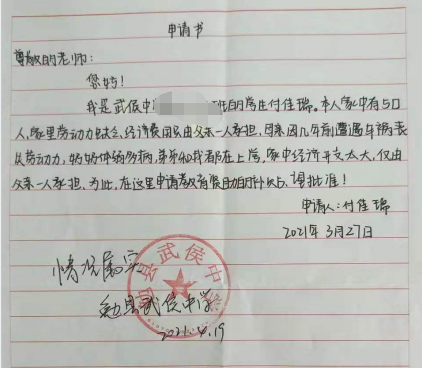 申请书
尊敬的老师:
您好!
我是武侯中 班的学生付佳瑞。本人家中有5口
人,家里劳动力缺乏,经济费用只由父亲一人承担,母亲因几年前遭遇车祸丧
失劳动力,妈妈体弱多病,弟弟和我都在上学,家中经济开支太大,仅由
父亲一人承担、为此,在这里申请教育资助的补贴、望批准!
申请人:付佳瑞
2021年3月27日
情况属实
勉县武侯中学
2021.4.19
勉县武侯中学